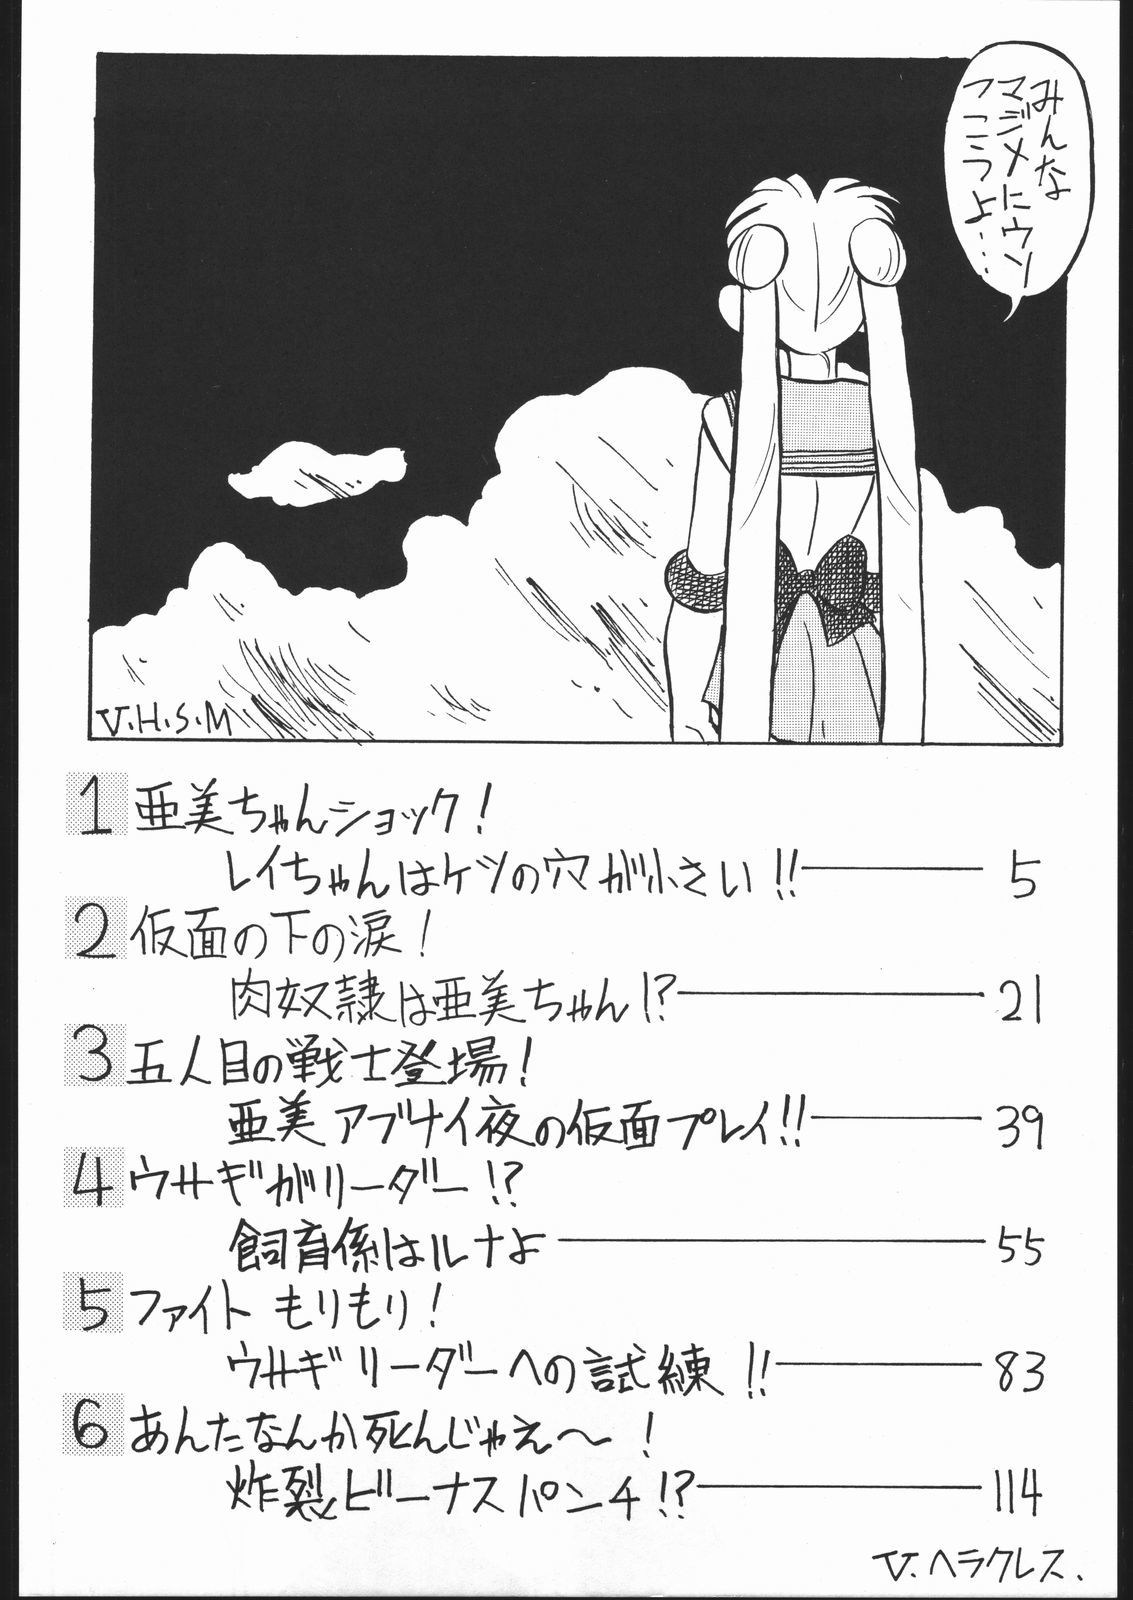 みんな
マジメにウソ
つこうよ…
V.H.S.M
1 亜美ちゃんショック!
レイちゃんはケツの穴が小さい!! 5
2 仮面の下の涙!
肉奴隷は亜美ちゃん!? 21
3 五人目の戦士登場!
亜美アブナイ夜の仮面プレイ!! 39
4 ウサギがリーダー!?
飼育係はルナよ 55
5 ファイト もりもり!
ウサギリーダーへの試練!! 83
6 あんたなんか死んじゃえ〜!
炸裂ビーナスパンチ!? 114
V.ヘラクレス.